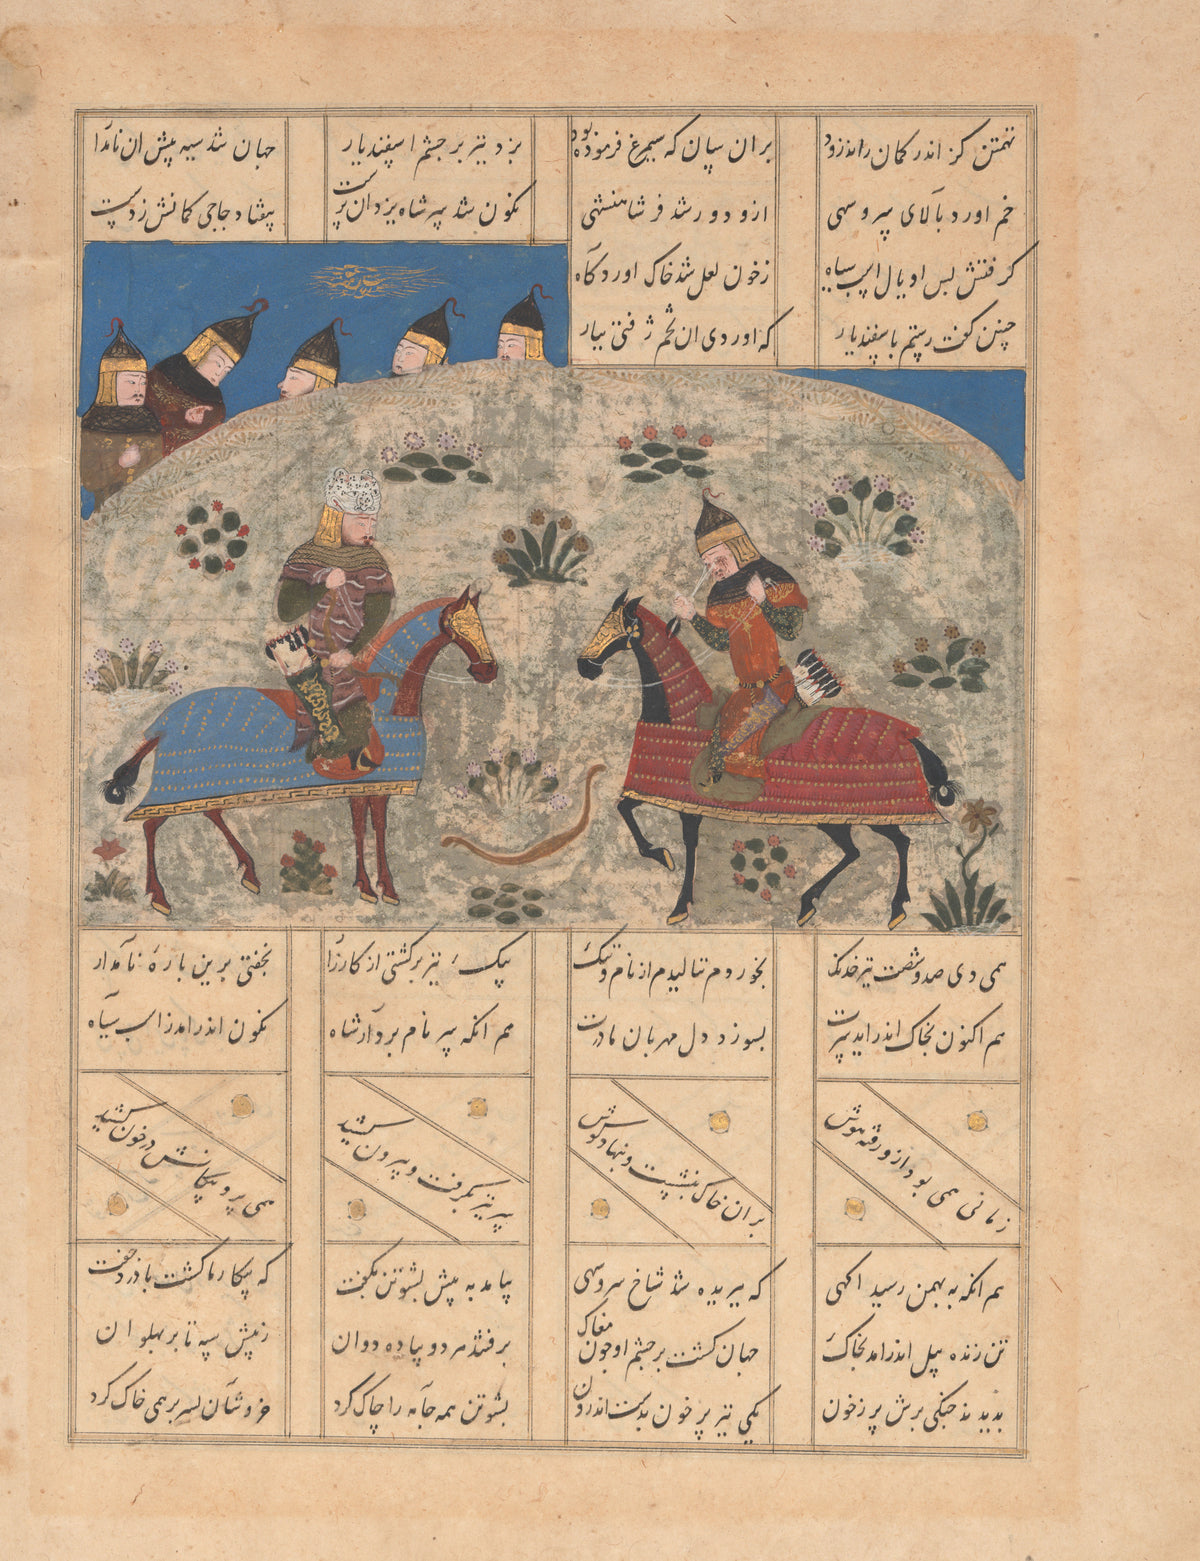 تهمتن کز اندر کمان راند زود بران سان که سیمرغ فرموده بود بزد تیر بر چشم اسفندیار جهان شد سیه پیش ان نامدا
خم اورد بالای سرو سهی ازو دور شد فر شاهنشهی نکون شد سر شاه یزدان پرست بیفتاد چاچی کمانش زدست
کرفتش بش و یال اسپ سیاه زخون لعل شد خاک اوردکاه
چنین کفت رستم باسفندیار که اوردی ان تخم زفتی ببار
همی دی صد و شصت تیر خدنک بخوردم ننالیدم از نام و ننک بیک تیر برکشتی از کارزار بخفتی برین باره نامدار
هم اکنون بخاک اندر اید سرت بسوزد دل مهربان مادرت هم انکه سر نام بردار شاه نکون اندر امد زاسب سیاه
زمانی همی بود ازو رفته هوش بران خاک بنشست و بنهاد کوش سر تیر بکرفت و بیرون کشید همی پر و پیکانش در خون کشید
هم انکه به بهمن رسید اکهی که ببریده شد شاخ سرو سهی بیامد به پیش بشوتن بکفت که پیکار ما کشت با درد جفت
تن ژنده پیل اندر امد بخاک جهان کشت بر چشم او چون مغاک برفتند هر دو پیاده دوان زپیش سپه تا بر پهلوان
بدیدند جنکی برش پر زخون یکی تیر پر خون بدست اندرون بشوتن همه جامه را چاک کرد خروشان بسر بر همی خاک کرد